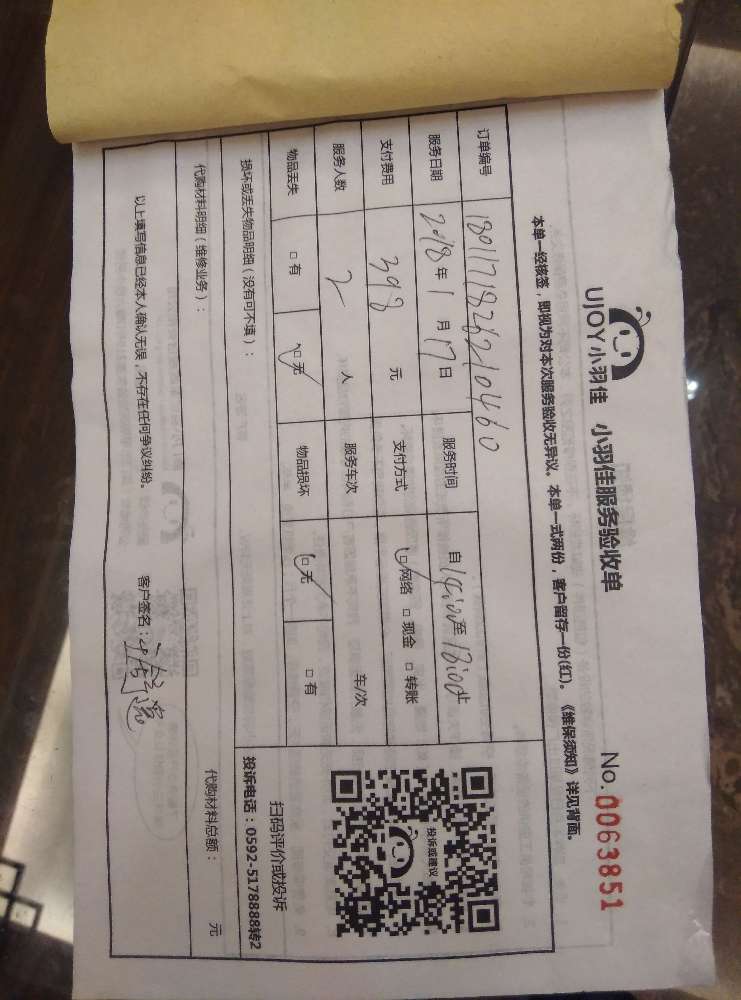 UJOY小羽佳 小羽佳服务验收单 No.0063851
本单一经核签，即视为对本次服务验收无异议。本单一式两份，客户留存一份(红)。《维保须知》详见背面。
订单编号 1801171826210460
服务日期 2018年1月17日 服务时间 自14:00至18:00止
支付费用 398元 支付方式 □网络 □现金 □转账
服务人数 2人 服务车次 车/次
物品丢失 □有 □无 物品损坏 □无 □有
投诉或建议
扫码评价或投诉
投诉电话：0592-5178888转2
损坏或丢失物品明细（没有可不填）：
代购材料明细（维修业务）： 代购材料总额： 元
以上填写信息已经本人确认无误，不存在任何争议纠纷。 客户签名：